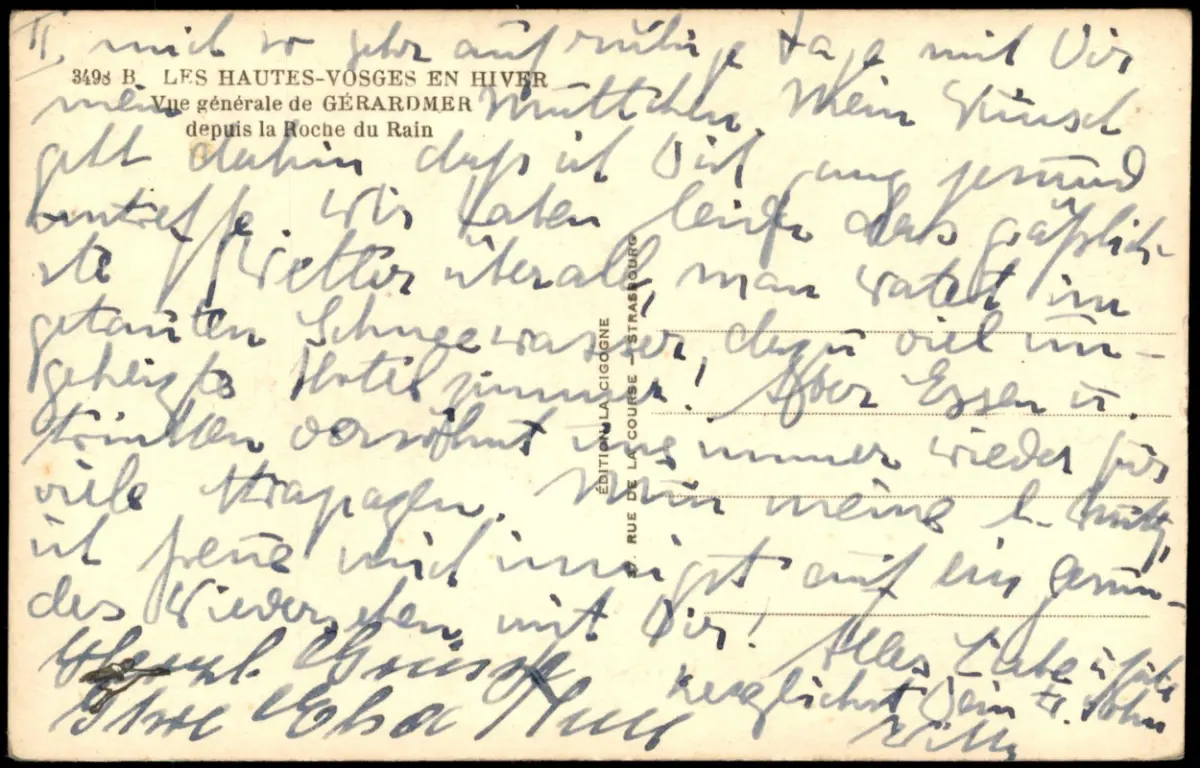 II. mich so sehr auf ruhige Tage mit Dir
3498 B. LES HAUTES-VOSGES EN HIVER
Vue générale de GÉRARDMER
depuis la Roche du Rain
mein Muttchen. Mein Wunsch
geht dahin daß ich Dich ganz gesund
antreffe. Wir haben leider das gräßlich-
ste Wetter überall, man watet im
getauten Schneewasser, dazu viel un-
geheizte Hotelzimmer! Aber Essen u.
trinken versöhnt uns immer wieder für
viele Strapazen. Nun meine l. Mutt,
ich freue mich innigst auf ein gesun-
des Wiedersehen mit Dir! Alles Liebe u. Gute
herzlichst Dein tr. Sohn
Willy
Herzl. Grüsse
Ihre Elsa
ÉDITION LA CIGOGNE
RUE DE LA COURSE - STRASBOURG